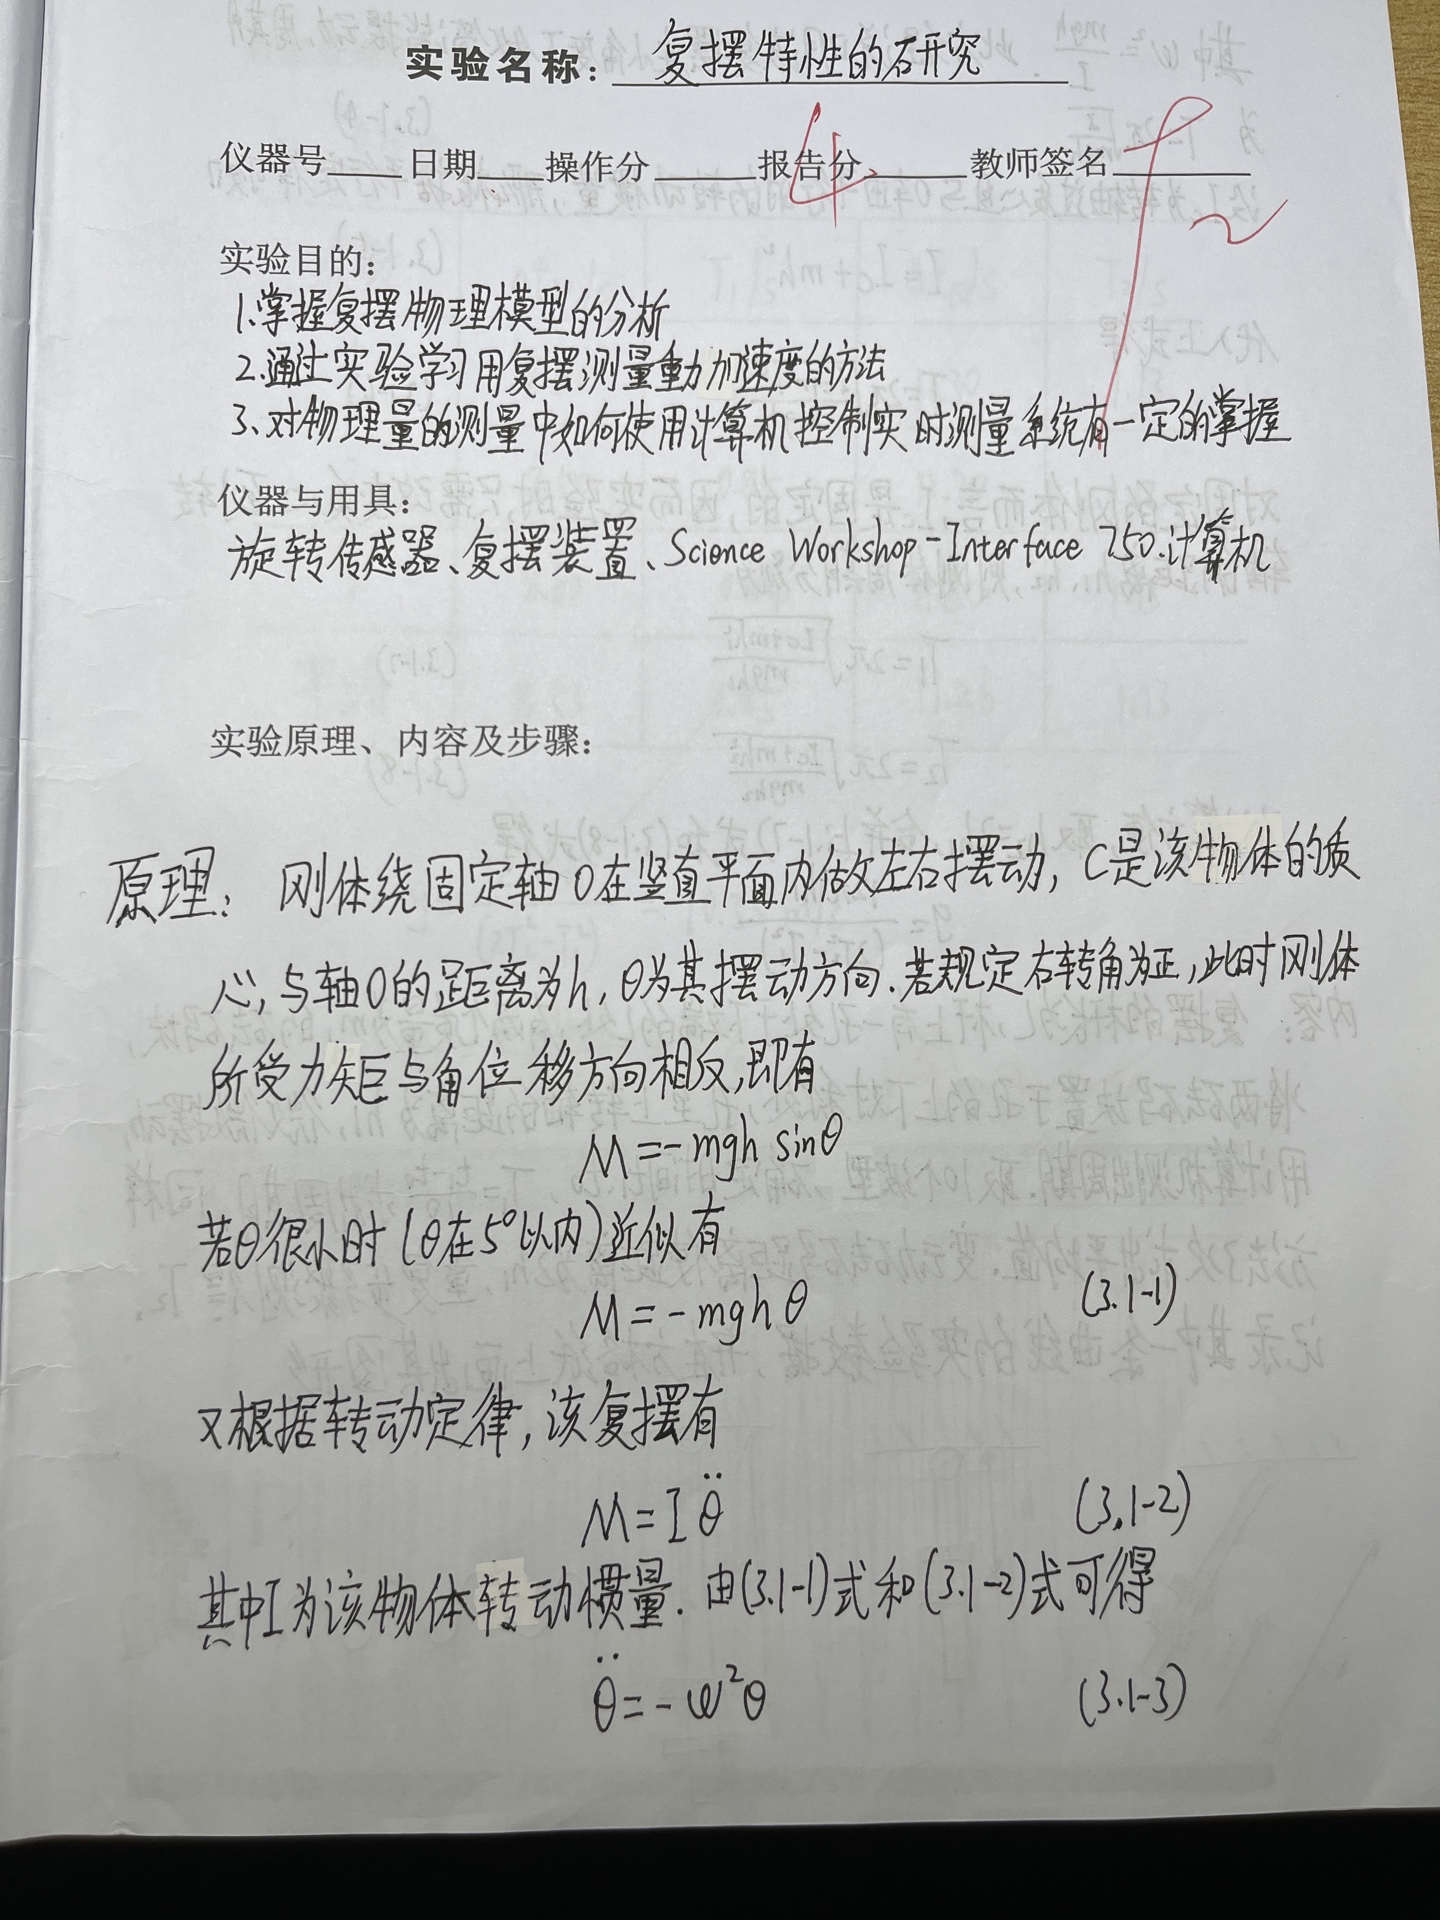 实验名称: 复摆特性的研究
仪器号 日期 操作分 报告分 4 教师签名
实验目的:
1.掌握复摆物理模型的分析
2.通过实验学习用复摆测量重力加速度的方法
3、对物理量的测量中如何使用计算机控制实时测量系统有一定的掌握
仪器与用具:
旋转传感器、复摆装置、Science Workshop-Interface 750.计算机
实验原理、内容及步骤:
原理: 刚体绕固定轴O在竖直平面内做左右摆动, C是该物体的质
心, 与轴O的距离为h, θ为其摆动方向. 若规定右转角为正, 此时刚体
所受力矩与角位移方向相反, 即有
M=-mgh sinθ
若θ很小时 (θ在5°以内) 近似有
M=-mghθ (3.1-1)
又根据转动定律, 该复摆有
M=Iθ̈ (3.1-2)
其中I为该物体转动惯量. 由(3.1-1)式和(3.1-2)式可得
θ̈=-ω²θ (3.1-3)